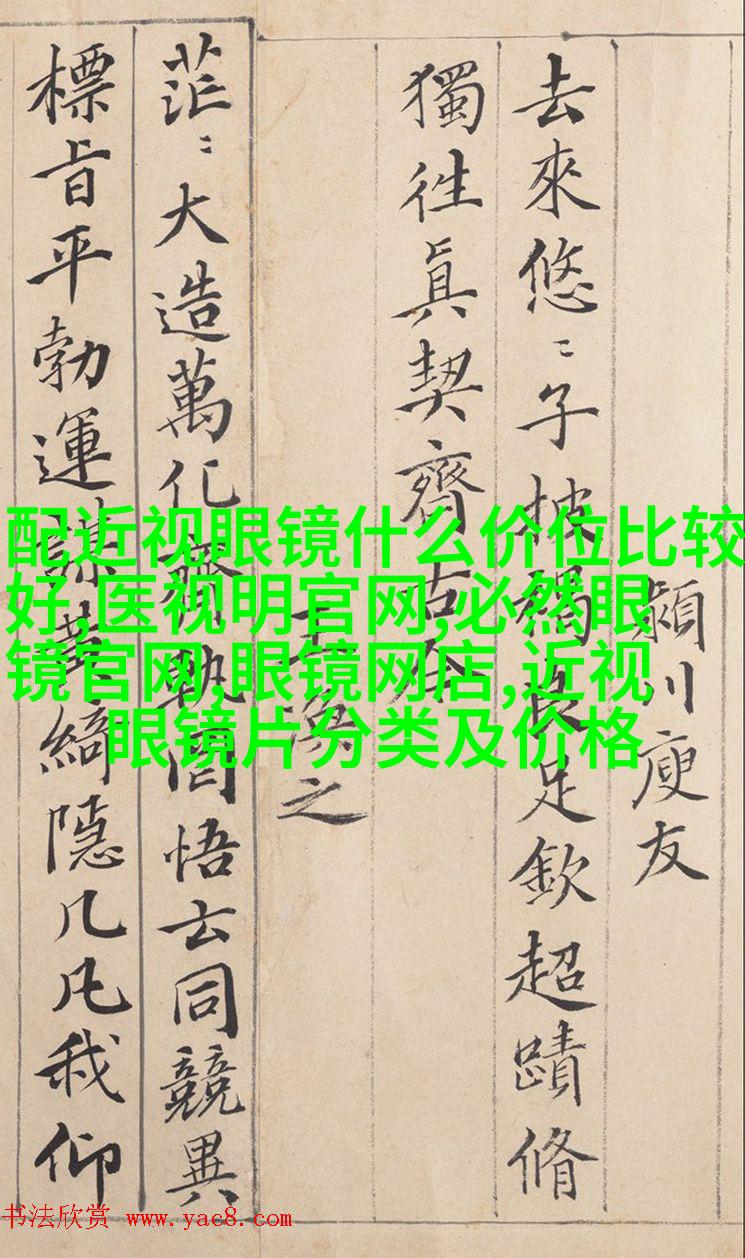 去來悠〻子披褐良足欽超蹟脩
獨往眞契齊古今
王渙之
茫〻大造萬化齊軌罔悟玄同競異
標旨平勃運謀黃綺隱几凡我仰
川庾友
配近视眼镜什么价位比较
好,医视明官网,必然眼
镜官网,眼镜网店,近视
眼镜片分类及价格
书法欣赏 www.yac8.com